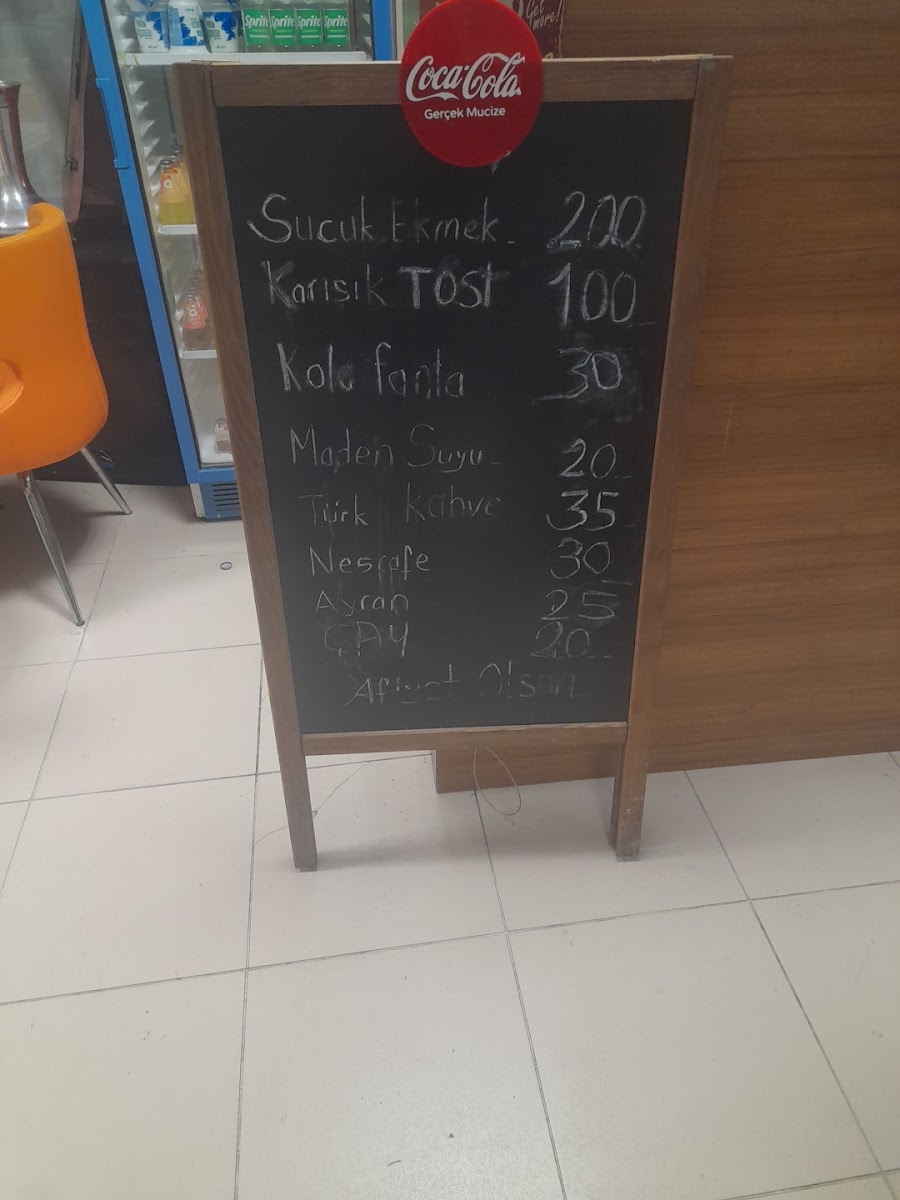 Sprite Sprite Sprite Sprite
Get
more!
Coca-Cola
Gerçek Mucize
Sucuk Ekmek - 200
Karışık TOST 100
Kola fanta 30
Maden Suyu - 20
Türk kahve 35
Nescafe 30
Ayran 25
ÇAY 20
Afiyet Olsun